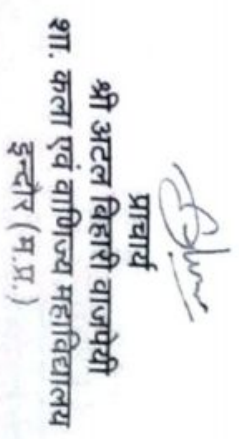 प्राचार्य
श्री अटल बिहारी वाजपेयी
शा. कला एवं वाणिज्य महाविद्यालय
इन्दौर (म.प्र.)